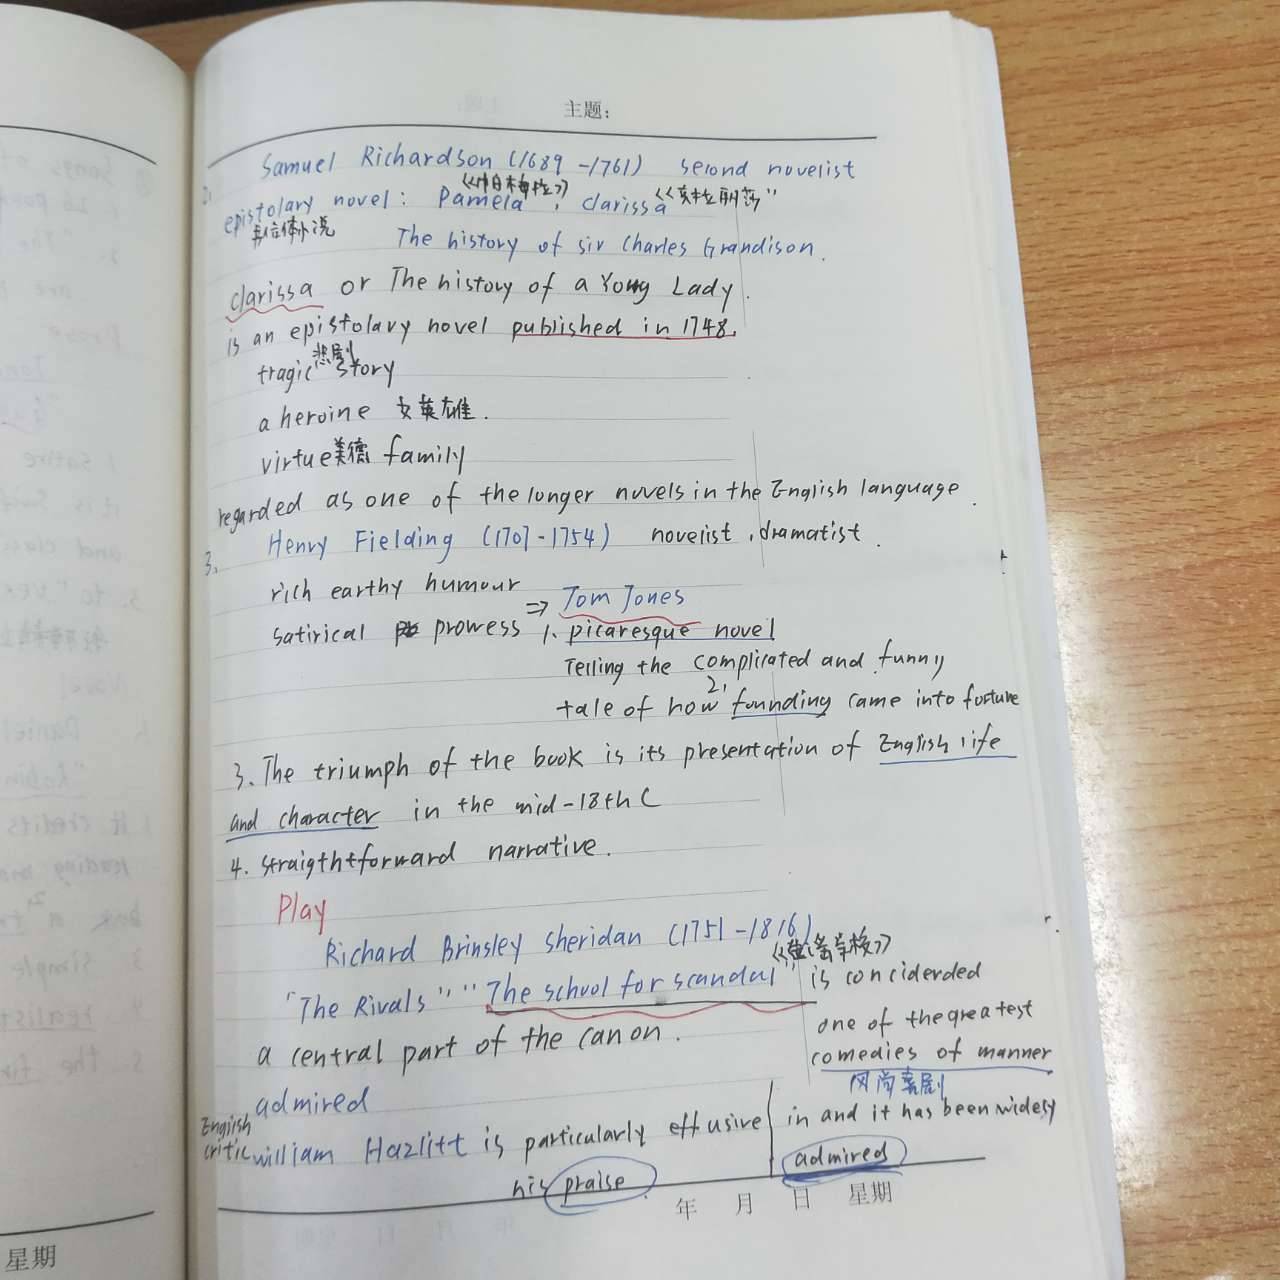 主题:
Samuel Richardson (1689-1761) second novelist
2. 《帕梅拉》 《克拉丽莎"
epistolary novel: Pamela, clarissa
书信体小说 The history of sir Charles Grandison.
clarissa or The history of a Yong Lady.
is an epistolary novel published in 1748.
悲剧
tragic story
a heroine 女英雄.
virtue美德 family
regarded as one of the longer novels in the English language.
3. Henry Fielding (1707-1754) novelist, dramatist.
rich earthy humour
⇒ Tom Jones
satirical prowess 1. picaresque novel
Telling the complicated and funny
2.
tale of how founding came into fortune
3. The triumph of the book is its presentation of English life
and character in the mid-18th C
4. straigthtforward narrative.
Play
Richard Brinsley sheridan (1751-1816)
"The Rivals" "The school for scandal" is conciderded
a central part of the canon.
one of the greatest
comedies of manner
风尚喜剧
admired
in and it has been widesy
admired
English
critic william Hazlitt is particularly effusive
his praise
年 月 日 星期
星期